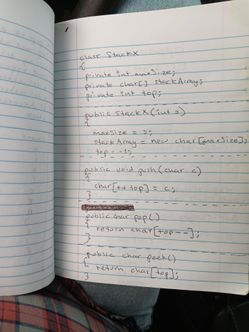 class StackX
{
private int maxSize;
private char[] stackArray;
private int top;
public StackX(int s)
{
maxSize = s;
stackArray = new char[maxSize];
top = -1;
}
public void push(char c)
{
char[++top] = c;
}
public char pop()
{
return char[top--];
}
public char peek()
{
return char[top];
}